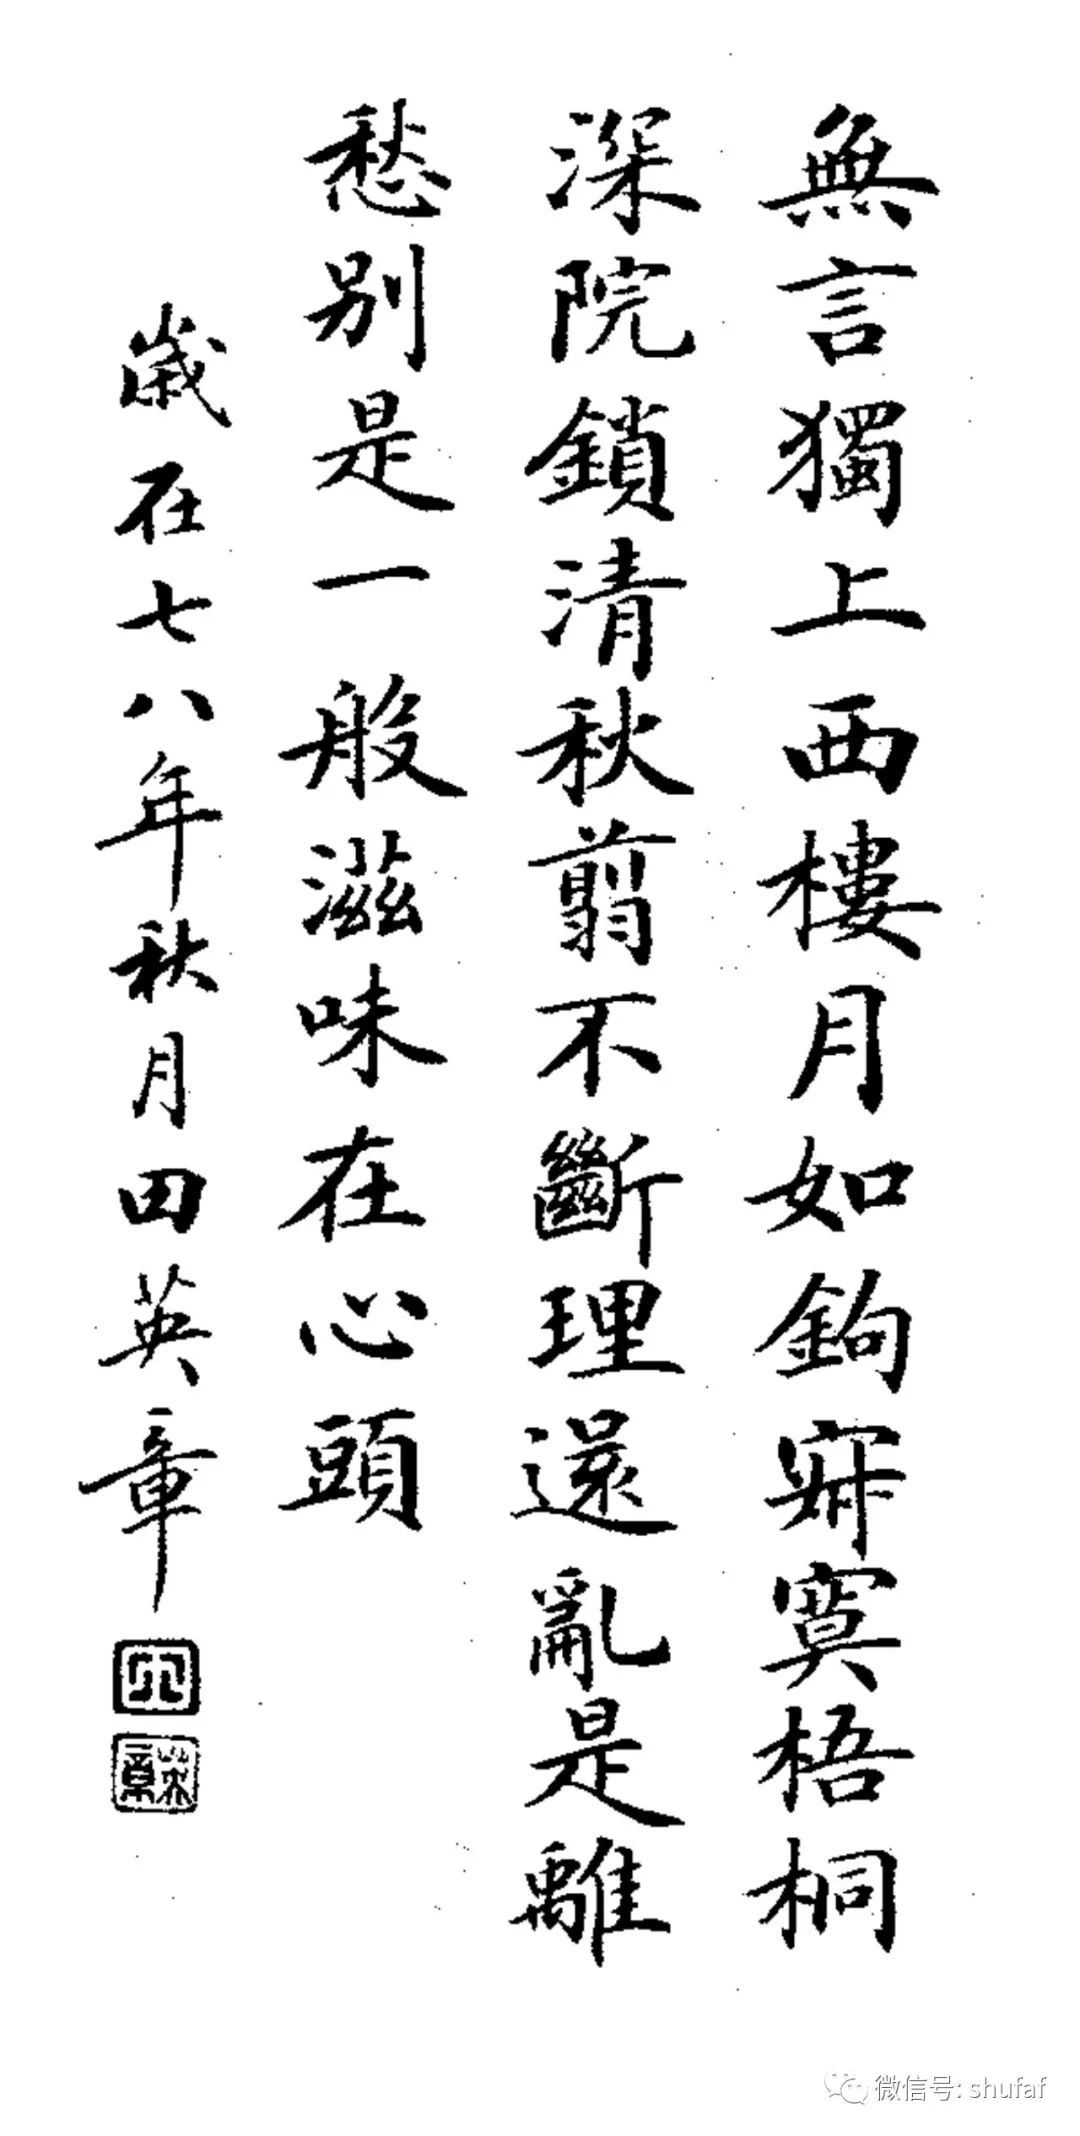 無言獨上西樓月如鉤寂寞梧桐
深院鎖清秋翦不斷理還亂是離
愁別是一般滋味在心頭
歲在七八年秋月田英章
英章
微信号: shufaf